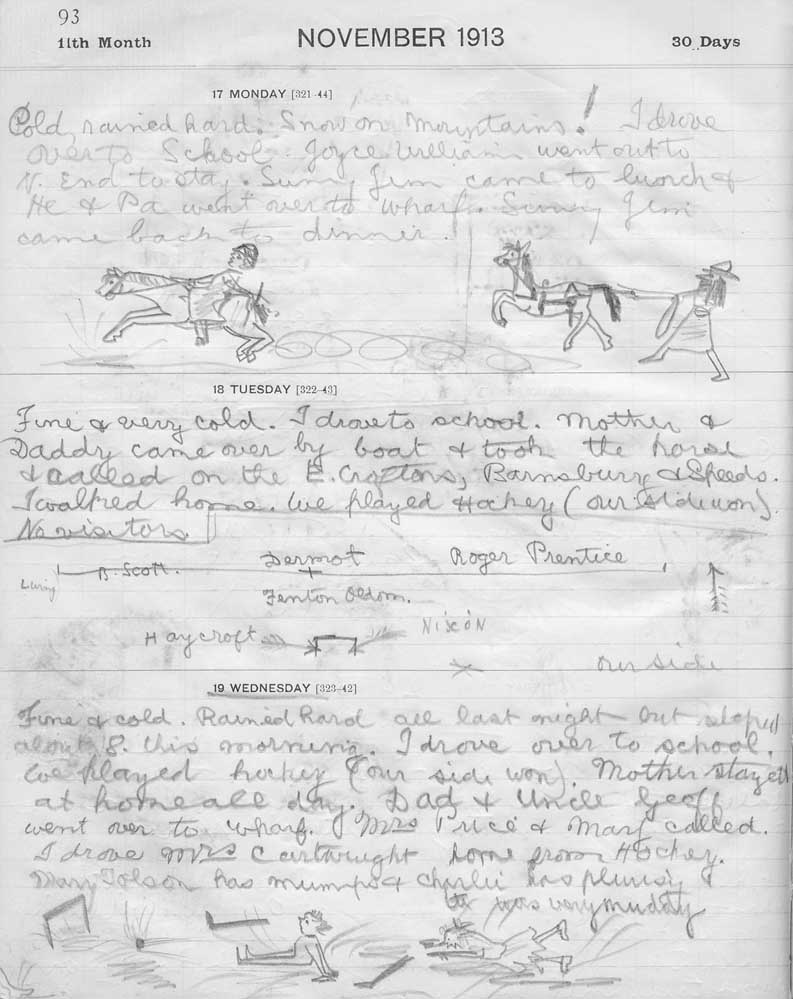 93
11th Month NOVEMBER 1913 30 Days
17 MONDAY [321-44]
Cold, rained hard. Snow on Mountains! I drove
over to School. Joyce Williams went out to
N. End to stay. Sunny Jim came to lunch &
He & Pa went over to wharf. Sunny Jim
came back to dinner.
18 TUESDAY [322-43]
Fine & very cold. I drove to school. Mother &
Daddy came over by boat & took the horse
& called on the E. Croftons, Barnsbury & Speeds.
I walked home. We played Hockey (our side won).
No visitors.
B. Scott. Dermot Roger Prentice
Fenton Oldom.
Haycroft Nixon
our side
19 WEDNESDAY [323-42]
Fine & cold. Rained hard all last night but stoped
about 8. this morning. I drove over to school.
We played hockey (our side won). Mother stayed
at home all day. Dad & Uncle Geoff
went over to wharf. Mrs Price & Mary called.
I drove Mrs Cartwright home from Hockey.
Mary Tolson has mumps & Charlie has plurisy &
was very muddy